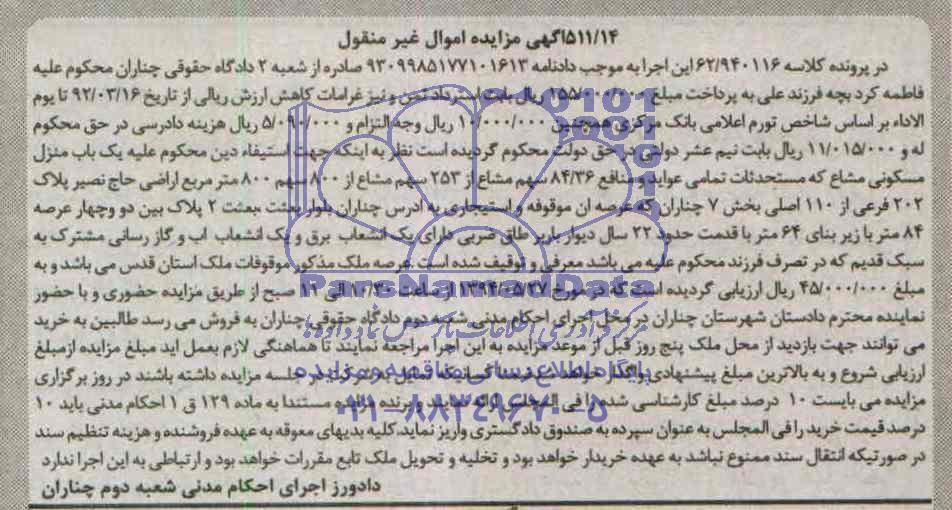 ۵۱۱/۱۴آگهی مزایده اموال غیر منقول
در پرونده کلاسه ۶۲/۹۴۰۱۱۶ این اجرا به موجب دادنامه ۹۳۰۹۹۸۵۱۷۷۱۰۱۶۱۳ صادره از شعبه ۲ دادگاه حقوقی چناران محکوم علیه
فاطمه کرد بچه فرزند علی به پرداخت مبلغ ۲۵۵/۰۰۰/۰۰۰ ریال بابت استرداد ثمن و نیز غرامات کاهش ارزش ریالی از تاریخ ۹۲/۰۳/۱۶ تا یوم
الاداء بر اساس شاخص تورم اعلامی بانک مرکزی همچنین ۱۰/۰۰۰/۰۰۰ ریال وجه التزام و ۵/۰۹۰/۰۰۰ ریال هزینه دادرسی در حق محکوم
له و ۱۱/۰۱۵/۰۰۰ ریال بابت نیم عشر دولتی در حق دولت محکوم گردیده است نظر به اینکه جهت استیفاء دین محکوم علیه یک باب منزل
مسکونی مشاع که مستحدثات تمامی عواید و منافع ۸۴/۳۶ سهم مشاع از ۲۵۳ سهم مشاع از ۸۰۰ سهم ۸۰۰ متر مربع اراضی حاج نصیر پلاک
۲۰۲ فرعی از ۱۱۰ اصلی بخش ۷ چناران که عرصه ان موقوفه و استیجاری به ادرس چناران بلوار بعثت ،بعثت ۲ پلاک بین دو وچهار عرصه
۸۴ متر با زیر بنای ۶۴ متر با قدمت حدود ۲۲ سال دیوار باربر طاق ضربی دارای یک انشعاب برق و یک انشعاب اب و گاز رسانی مشترک به
سبک قدیم که در تصرف فرزند محکوم علیه می باشد معرفی و توقیف شده است عرصه ملک مذکور موقوفات ملک استان قدس می باشد و به
مبلغ ۴۵/۰۰۰/۰۰۰ ریال ارزیابی گردیده است که در مورخ ۱۳۹۴/۰۵/۲۷ از ساعت الی ۱۲ صبح از طریق مزایده حضوری و با حضور
نماینده محترم دادستان شهرستان چناران در محل اجرای احکام مدنی شعبه دوم دادگاه حقوقی چناران به فروش می رسد طالبین به خرید
می توانند جهت بازدید از محل ملک پنج روز قبل از موعد مزایده به این اجرا مراجعه نمایند تا هماهنگی لازم بعمل اید مبلغ مزایده ازمبلغ
ارزیابی شروع و به بالاترین مبلغ پیشنهادی واگذار خواهد شد جلسه مزایده داشته باشند در روز برگزاری
مزایده می بایست ۱۰ درصد مبلغ کارشناسی شده را فی المجلس ارائه نمایند و برنده مزایده مستندا به ماده ۱۲۹ ق ا احکام مدنی باید ۱۰
درصد قیمت خرید را فی المجلس به عنوان سپرده به صندوق دادگستری واریز نماید.کلیه بدیهای معوقه به عهده فروشنده و هزینه تنظیم سند
در صورتیکه انتقال سند ممنوع نباشد به عهده خریدار خواهد بود و تخلیه و تحویل ملک تابع مقررات خواهد بود و ارتباطی به این اجرا ندارد
دادورز اجرای احکام مدنی شعبه دوم چناران
ParsNamadData
پایگاه اطلاع رسانی مناقصه و مزایده
۰۲۱-۸۸۳۴۹۶۷۰-۵